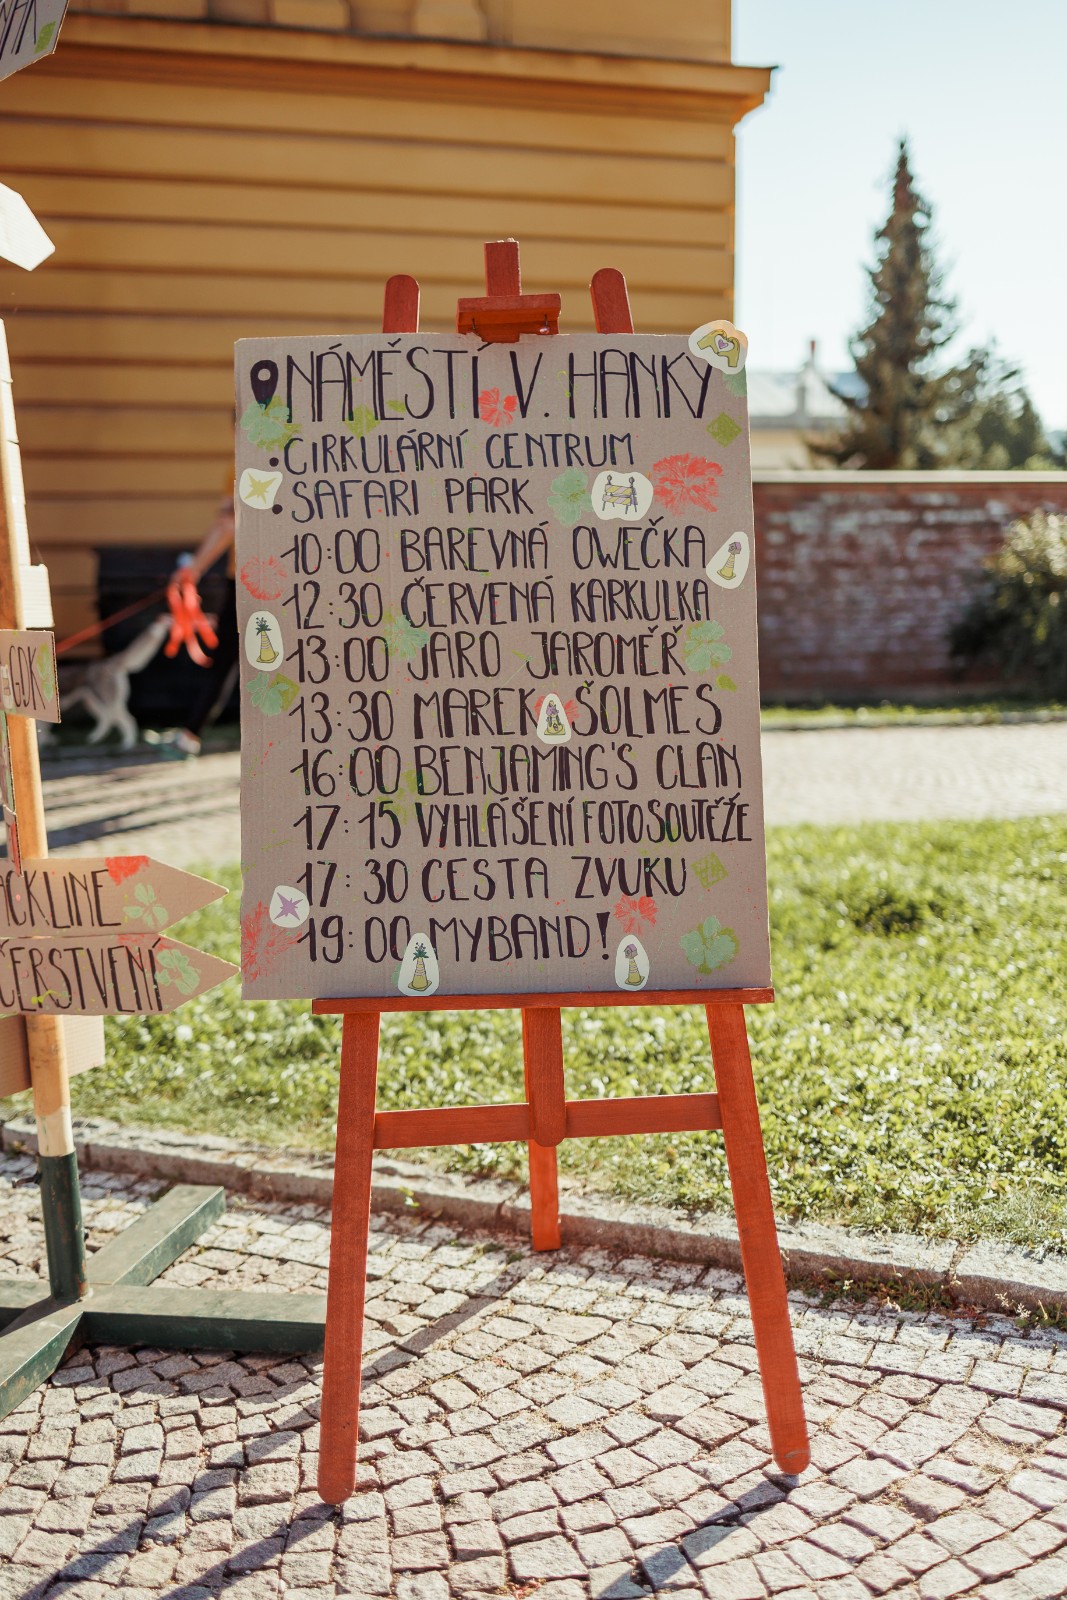 NÁMĚSTÍ V. HANKY
• CIRKULÁRNÍ CENTRUM
• SAFARI PARK
10:00 BAREVNÁ OWEČKA
12:30 ČERVENÁ KARKULKA
13:00 JARO JAROMĚŘ
13:30 MAREK ŠOLMES
16:00 BENJAMING'S CLAN
17:15 VYHLÁŠENÍ FOTOSOUTĚŽE
17:30 CESTA ZVUKU
19:00 MYBAND!
GDK
ACKLINE
ČERSTVENÍ